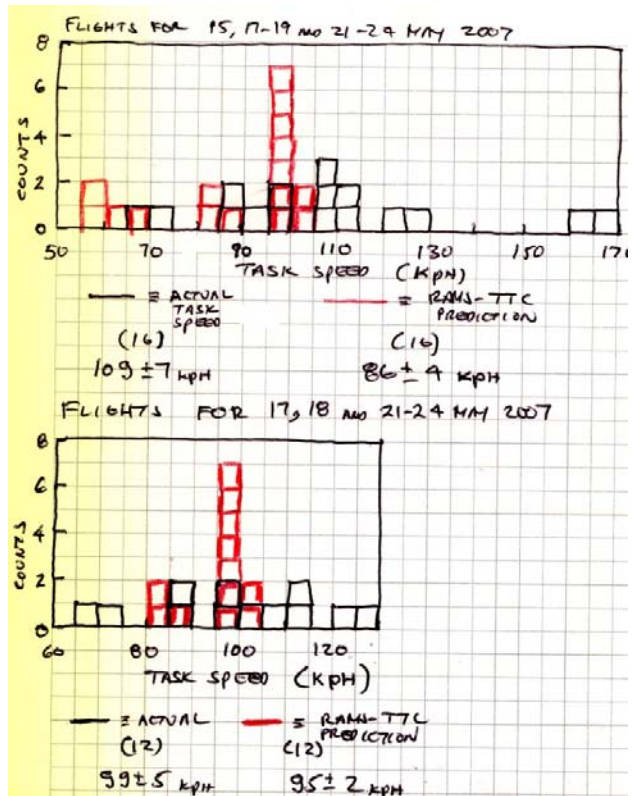 FLIGHTS FOR 15, 17-19 AND 21-24 MAY 2007
8
6
4
2
0
COUNTS
50 70 90 110 130 150 170
TASK SPEED (KPH)
≡ ACTUAL TASK SPEED
(16)
109 ± 7 KPH
≡ RAMS-TTC PREDICTION
(16)
86 ± 4 KPH
FLIGHTS FOR 17, 18 AND 21-24 MAY 2007
8
6
4
2
0
COUNTS
60 80 100 120
TASK SPEED (KPH)
≡ ACTUAL
(12)
99 ± 5 KPH
≡ RAMS-TTC PREDICTION
(12)
95 ± 2 KPH